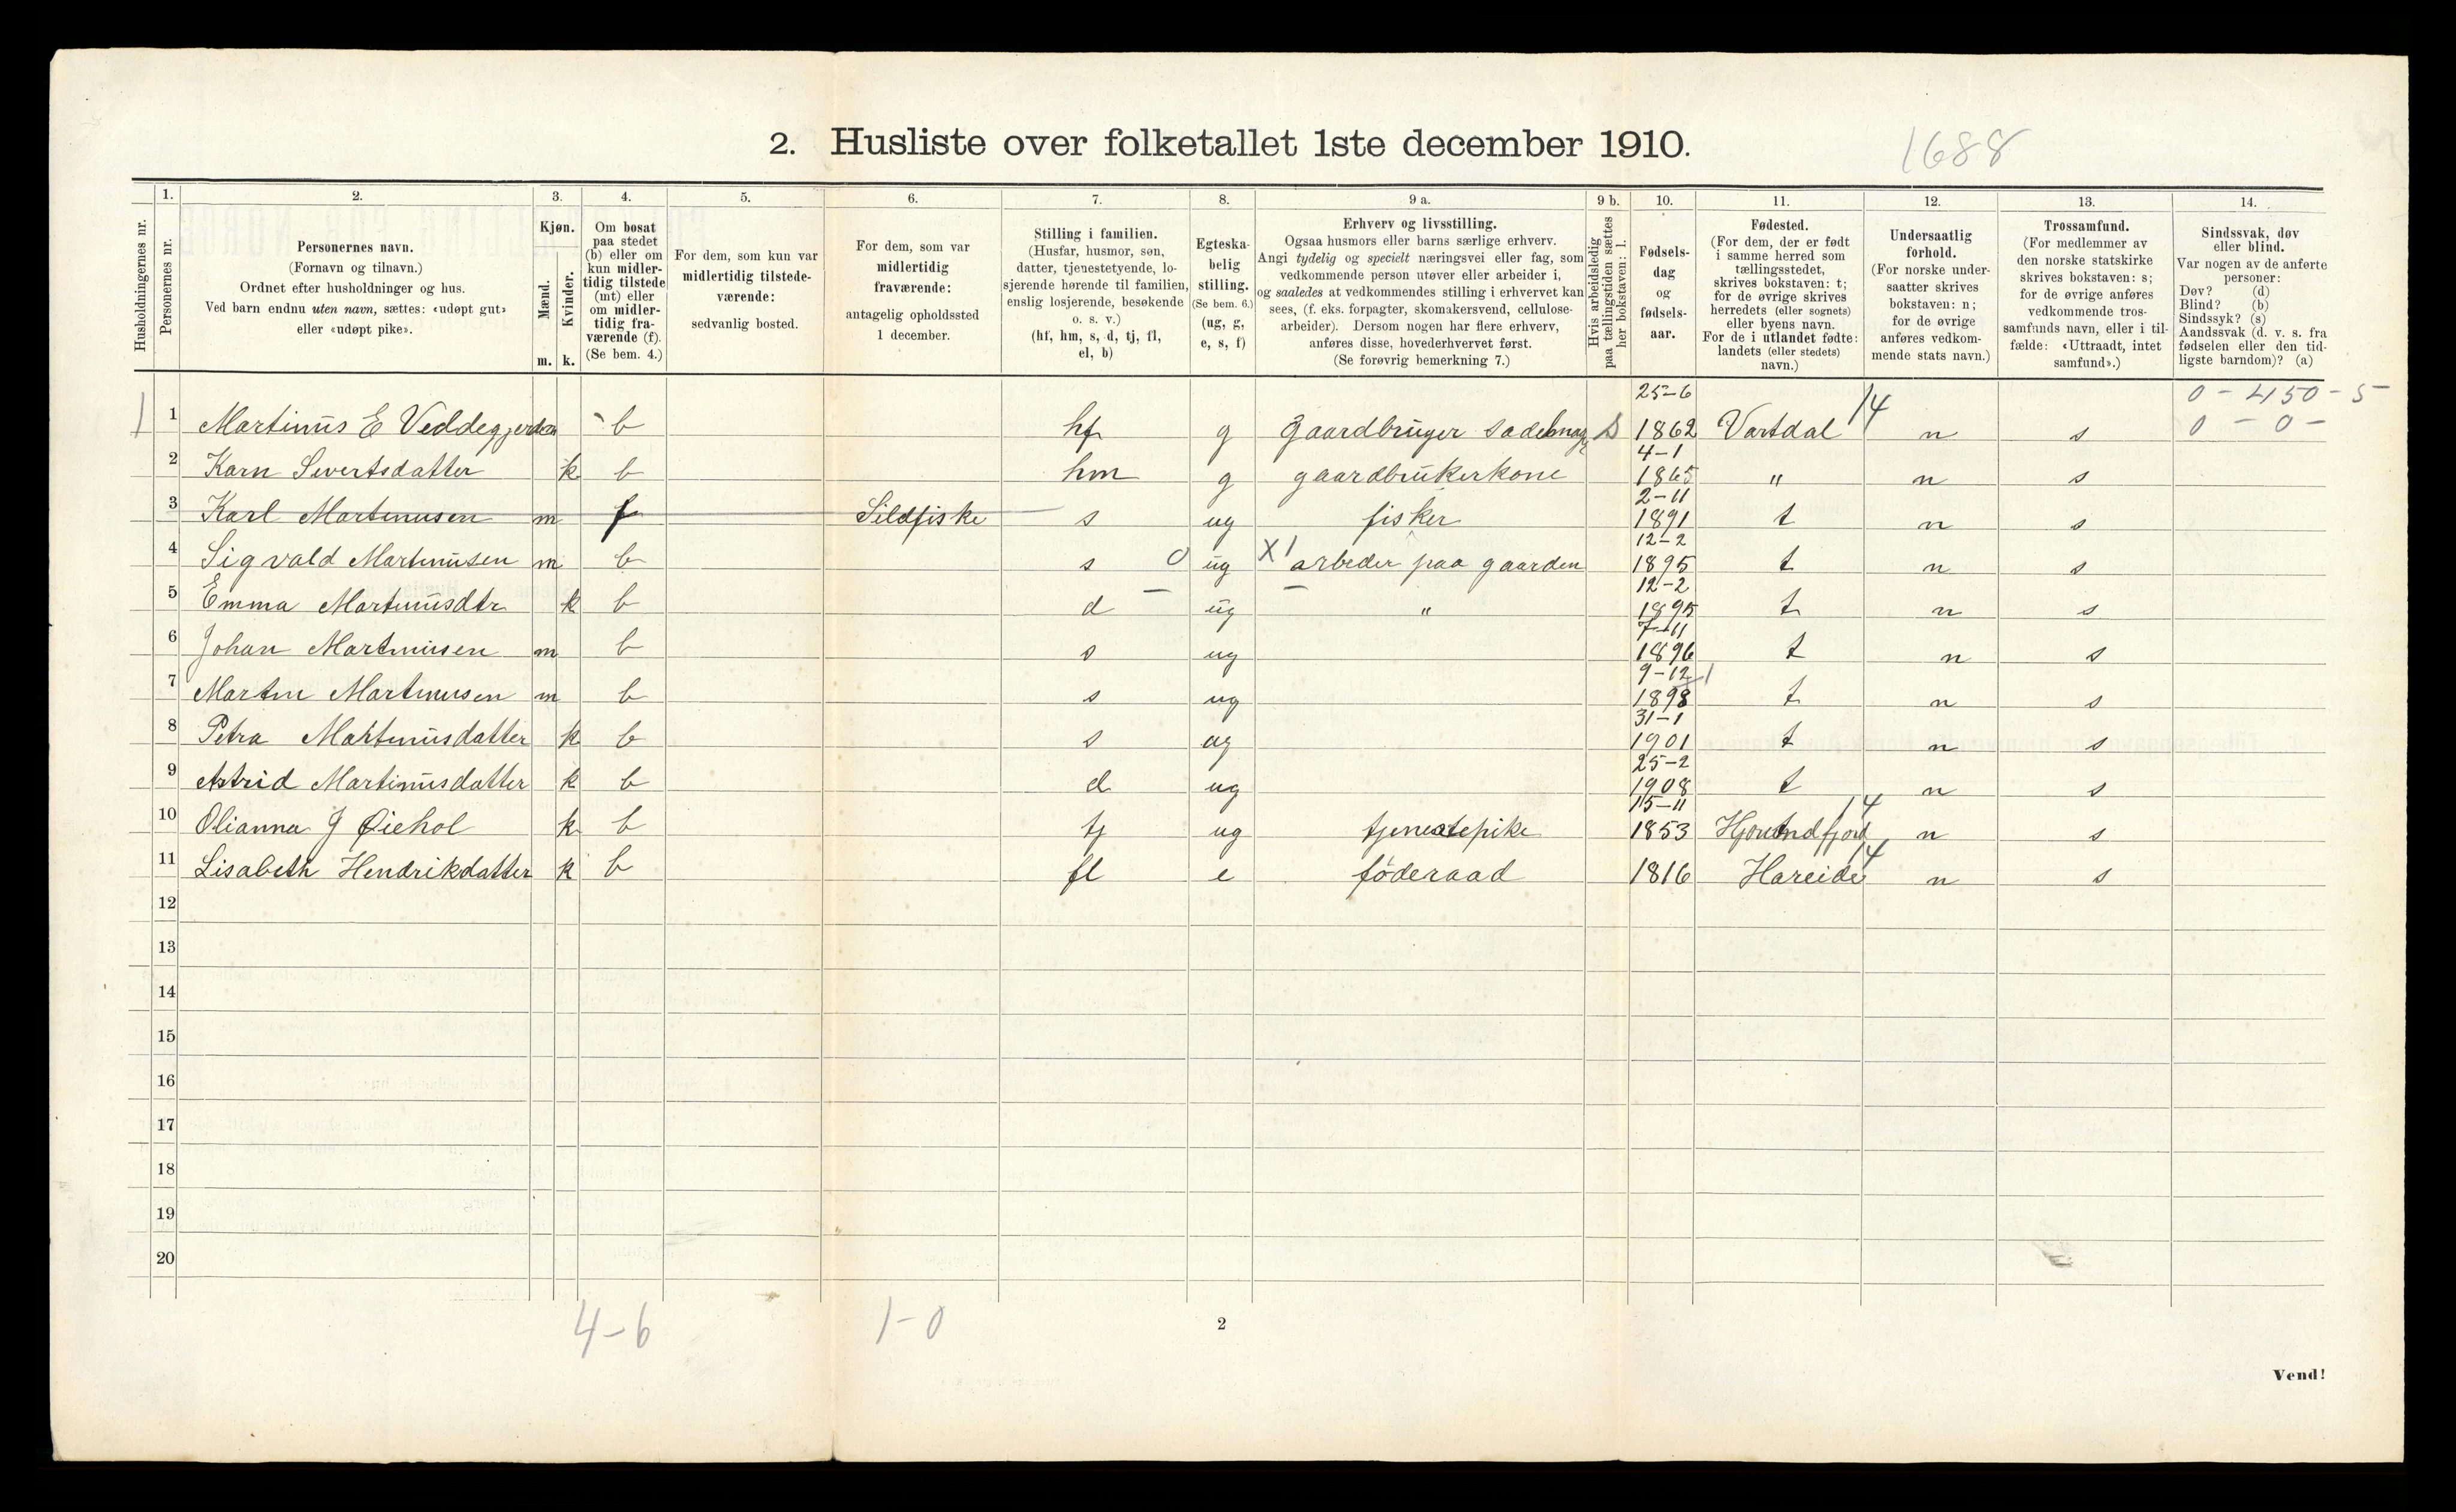 2. Husliste over folketallet 1ste december 1910.
1688
Husholdningernes nr.
1.
Personernes nr.
2.
Personernes navn.
(Fornavn og tilnavn.)
Ordnet efter husholdninger og hus.
Ved barn endnu uten navn, sættes: «udøpt gut»
eller «udøpt pike».
3.
Kjøn.
Mænd.
Kvinder.
m. k.
4.
Om bosat
paa stedet
(b) eller om
kun midler-
tidig tilstede
(mt) eller
om midler-
tidig fra-
værende (f).
(Se bem. 4.)
5.
For dem, som kun var
midlertidig tilstede-
værende:
sedvanlig bosted.
6.
For dem, som var
midlertidig
fraværende:
antagelig opholdssted
1 december.
7.
Stilling i familien.
(Husfar, husmor, søn,
datter, tjenestetyende, lo-
sjerende hørende til familien,
enslig losjerende, besøkende
o. s. v.)
(hf, hm, s, d, tj, fl,
el, b)
8.
Egteska-
belig
stilling.
(Se bem. 6.)
(ug, g,
e, s, f)
9 a.
Erhverv og livsstilling.
Ogsaa husmors eller barns særlige erhverv.
Angi tydelig og specielt næringsvei eller fag, som
vedkommende person utøver eller arbeider i,
og saaledes at vedkommendes stilling i erhvervet kan
sees, (f. eks. forpagter, skomakersvend, cellulose-
arbeider). Dersom nogen har flere erhverv,
anføres disse, hovederhvervet først.
(Se forøvrig bemerkning 7.)
9 b.
Hvis arbeidsledig
paa tællingstiden sættes
her bokstaven: l.
10.
Fødsels-
dag
og
fødsels-
aar.
11.
Fødested.
(For dem, der er født
i samme herred som
tællingsstedet,
skrives bokstaven: t;
for de øvrige skrives
herredets (eller sognets)
eller byens navn.
For de i utlandet fødte:
landets (eller stedets)
navn.)
12.
Undersaatlig
forhold.
(For norske under-
saatter skrives
bokstaven: n;
for de øvrige
anføres vedkom-
mende stats navn.)
13.
Trossamfund.
(For medlemmer av
den norske statskirke
skrives bokstaven: s;
for de øvrige anføres
vedkommende tros-
samfunds navn, eller i til-
fælde: «Uttraadt, intet
samfund».)
14.
Sindssvak, døv
eller blind.
Var nogen av de anførte
personer:
Døv? (d)
Blind? (b)
Sindssyk? (s)
Aandssvak (d. v. s. fra
fødselen eller den tid-
ligste barndom)? (a)
25-6 14 0 - 450 - 5
1 1 Martinus E Veddegjerden b hf g gaardbruger 1862 Vartdal n s 0 - 0 -
4-1
2 Karn Sivertsdatter k b hm g gaardbrukerkone 1865 " n s
2-11
3 Karl Martinusen m f Sildfiske s ug fisker 1891 t n s
12-2
4 Sigvald Martinusen m b s 0 ug X1 arbeder paa gaarden 1895 t n s
12-2
5 Emma Martinusdtr k b d ug " 1895 t n s
7-11
6 Johan Martinusen m b s ug 1896 t n s
9-12 1
7 Martin Martinusen m b s ug 1898 t n s
31-1
8 Petra Martinusdatter k b s ug 1901 t n s
25-2
9 Astrid Martinusdatter k b d ug 1908 t n s
15-11 14
10 Olianna J Øiehol k b tj ug tjenestepike 1853 n s
14
11 Lisabeth Hendrikdatter k b fl e föderaad 1816 Hareide n s
12
13
14
15
16
17
18
19
20
4-6 1-0
2
Vend!